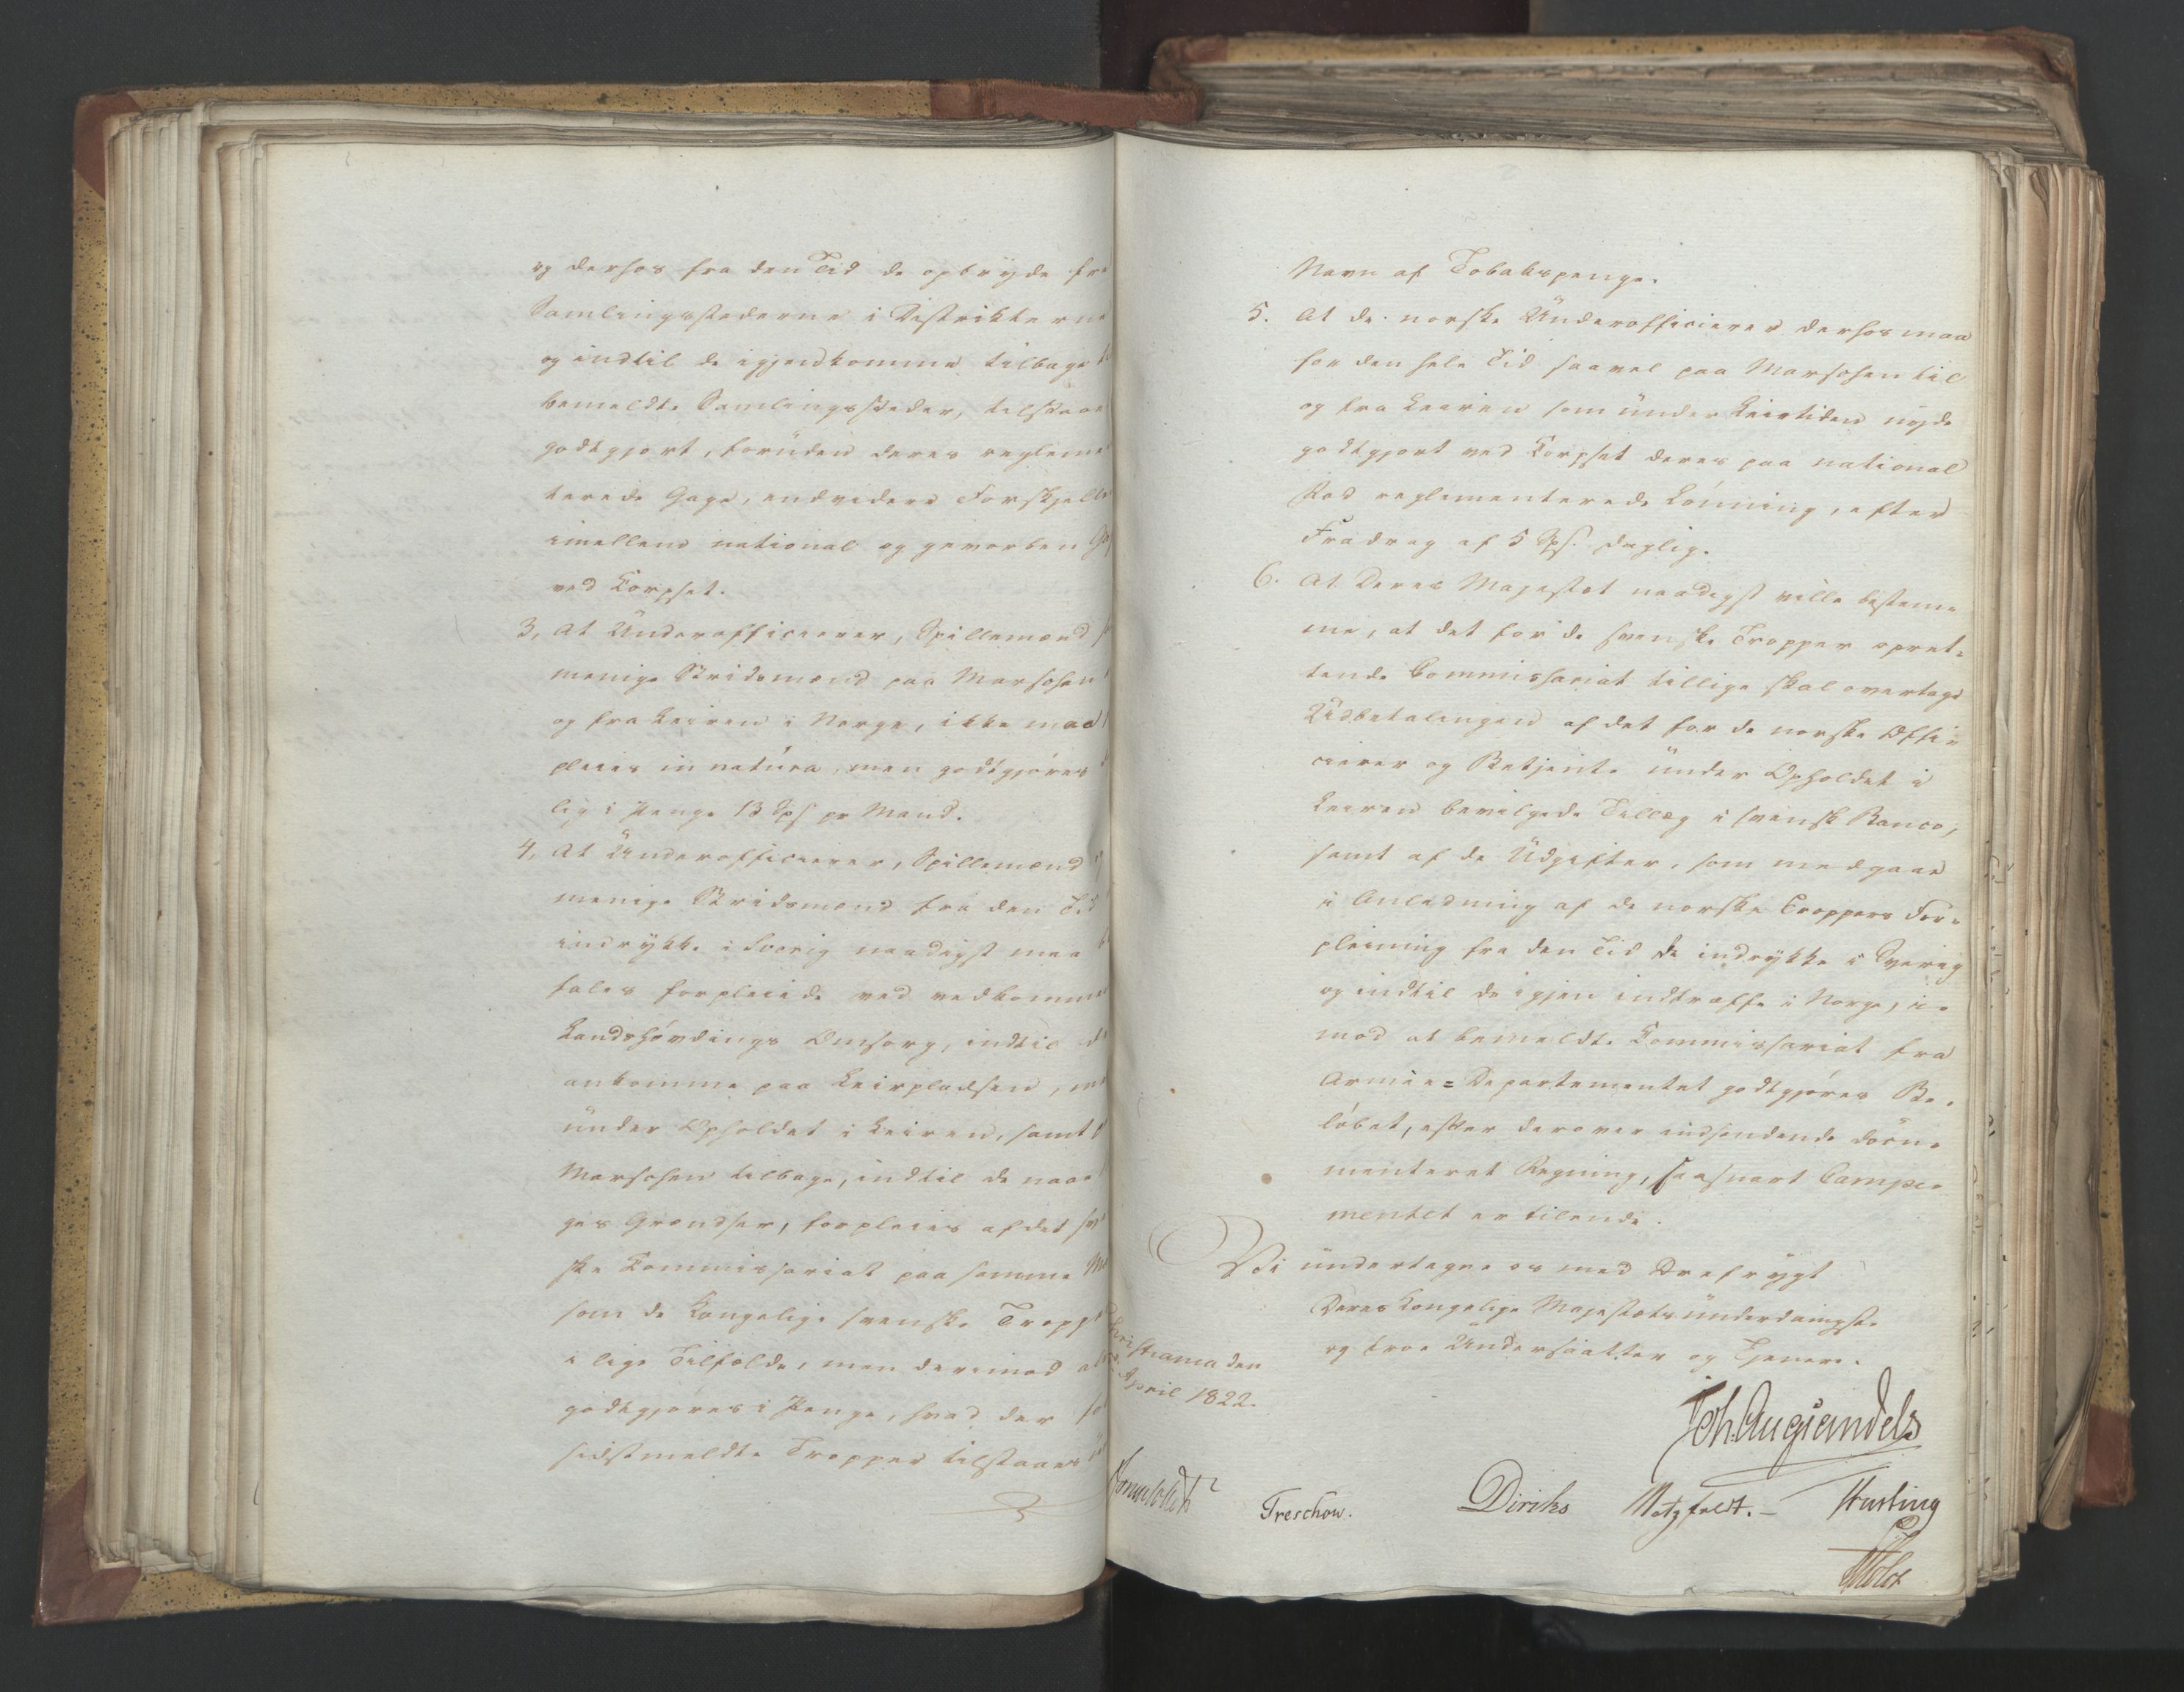 og derhos fra den Tid de opbryde fra
Samlingsstederne i Distrikterne
og indtil de igjenkomme tilbage
bemeldte Samlingssteder, tilstaaes
godtgjort, foruden deres reglemen
terede Gage, endvidere Forskjellen
imellem national og geworben
ved Korpset.
3, At Underofficierer, Spillemænd
menige Stridsmænd paa Marschen
og fra Leiren i Norge, ikke maa
pleies in natura, men godtgjøres
lig i Penge 13 Sps pr Mand.
4, At Underofficierer, Spillemænd
menige Stridsmænd fra den Tid
indrykke i Sverig naadigst maa
fales forpleiede ved vedkommen
Landshøvdings Omsorg, indtil de
ankomme paa Leirpladsen,
under Opholdet i Leiren, samt
Marschen tilbage, indtil de naae
ges Grændser, forpleies af det sv
ske Commissariat paa samme
som de Kongelige svenske Tropp
i lige Tilfælde, men derimod
godtgjøres i Penge, hvad der
sidstmeldte Tropper tilstaaes
Navn af Tobakspenge.
5. At de norske Underofficierer derhos maa
for den hele Tid saavel paa Marschen til
og fra Leiren som under Leirtiden nyde
godtgjort ved Korpset deres paa national
Fod reglementerede Lønning, efter
Fradrag af 5 Sps. daglig.
6. At Deres Majestæt naadigst ville bestem
me, at det for de svenske Tropper opret-
tende Commissariat tillige skal overtage
Udbetalingen af det for de norske Offi-
cierer og Betjente under Opholdet i
Leiren bevilgede Tillæg i svensk Banco,
samt af de Udgifter, som medgaae
i Anledning af de norske Troppers For-
pleining fra den Tid de indrykke i Sverig
og indtil de igjen indtræffe i Norge, i-
mod at bemeldte Commissariat fra
Armee-Departementet godtgjøres Be-
løbet, efter derover indsendende docu-
menteret Regning, saasnart Campe-
mentet er tilende.
Vi undertegne os med Ærefrygt
Deres Kongelige Majestæts underdanigste
og troe Undersaatter og Tjenere.
Christiania den
April 1822.
Joh. Aug Sandels
Sommerhielm Treschow. Diriks Motzfeldt. Hasting
Holst